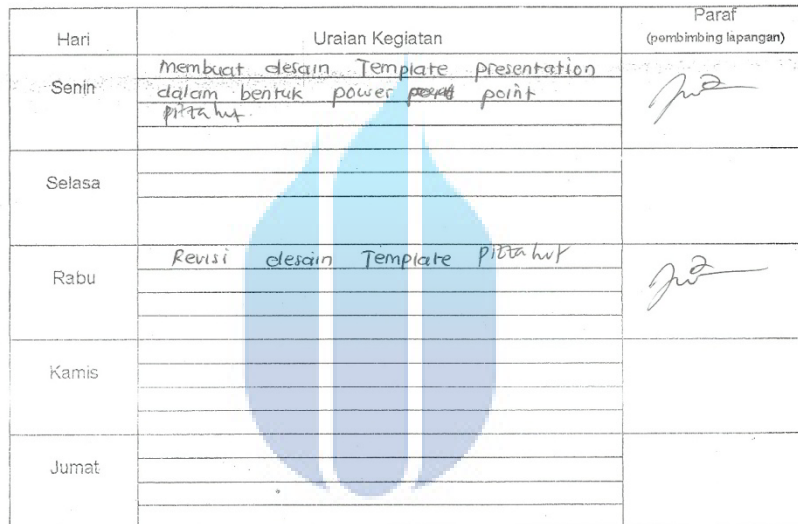 Hari
Uraian Kegiatan
Paraf
(pembimbing lapangan)
Senin
Membuat desain Template presentation
dalam bentuk power point
pizza hut.
Selasa
Rabu
Revisi desain Template pizza hut
Kamis
Jumat